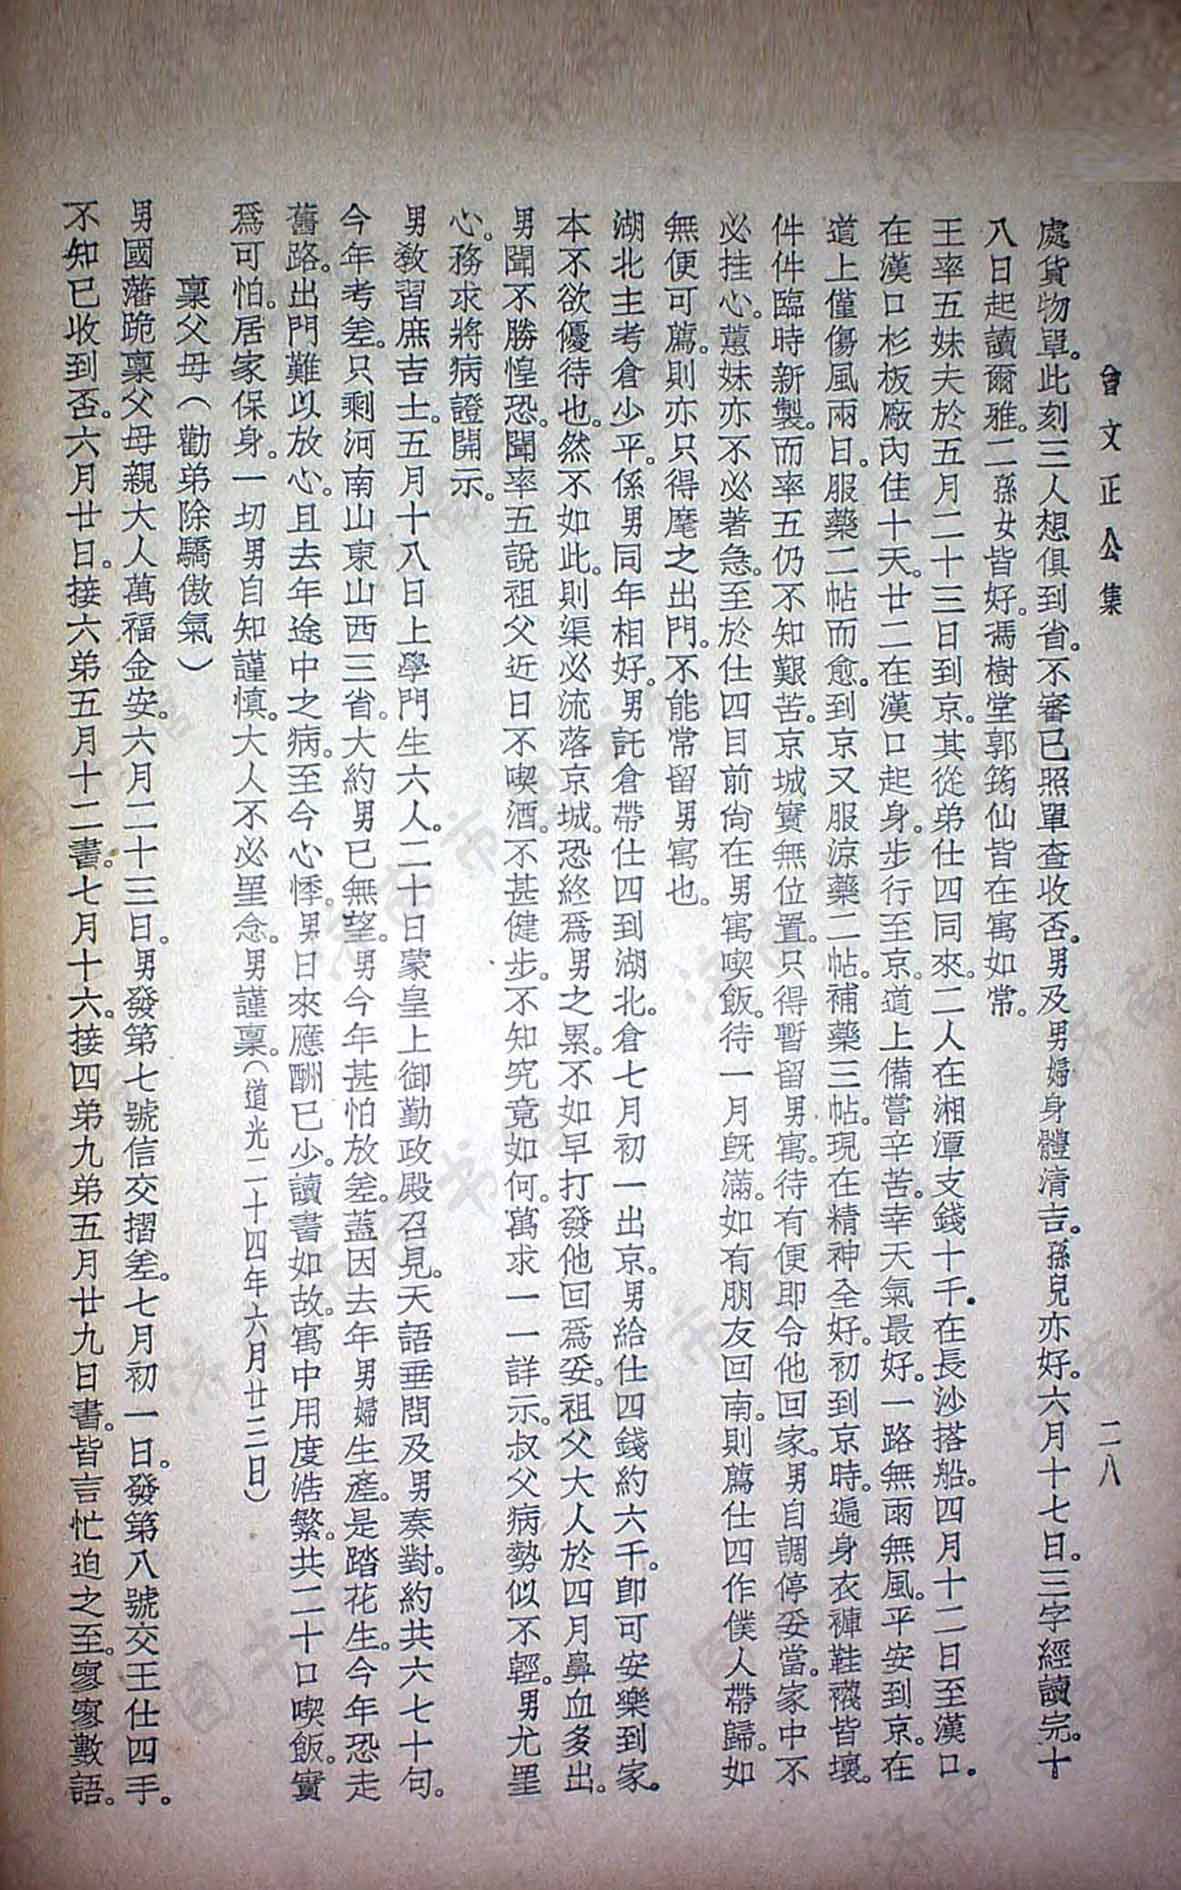 曾文正公集
二八
處貨物單。此刻三人想俱到省。不審已照單查收否。男及男婦身體清吉。孫兒亦好。六月十七日。三字經讀完。十
八日起讀爾雅。二孫女皆好。馮樹堂郭筠仙皆在寓如常。
王率五妹夫於五月二十三日到京。其從弟仕四同來。二人在湘潭支錢十千。在長沙搭船。四月十二日至漢口。
在漢口杉板廠內住十天。廿二在漢口起身。步行至京。道上備嘗辛苦。幸天氣最好。一路無雨無風。平安到京。在
道上僅傷風兩日。服藥二帖而愈。到京又服涼藥二帖。補藥三帖。現在精神全好。初到京時。遍身衣褲鞋襪皆壞。
件件臨時新製。而率五仍不知艱苦。京城實無位置。只得暫留男寓。待有便即令他回家。男自調停妥當。家中不
必挂心。蕙妹亦不必著急。至於仕四目前尙在男寓喫飯。待一月旣滿。如有朋友回南。則薦仕四作僕人帶歸。如
無便可薦。則亦只得麾之出門。不能常留男寓也。
湖北主考倉少平。係男同年相好。男託倉帶仕四到湖北。倉七月初一出京。男給仕四錢約六千。卽可安樂到家。
本不欲優待也。然不如此。則渠必流落京城。恐終爲男之累。不如早打發他回爲妥。祖父大人於四月鼻血多出。
男聞不勝惶恐。聞率五說祖父近日不喫酒。不甚健步。不知究竟如何。萬求一一詳示。叔父病勢似不輕。男尤罣
心。務求將病證開示。
男教習庶吉士。五月十八日上學門生六人。二十日蒙皇上御勤政殿召見。天語垂問及男奏對。約共六七十句。
今年考差。只剩河南山東山西三省。大約男已無望。男今年甚怕放差。蓋因去年男婦生產。是踏花生。今年恐走
舊路。出門難以放心。且去年途中之病。至今心悸。男日來應酬已少。讀書如故。寓中用度浩繁。共二十口喫飯。實
爲可怕。居家保身。一切男自知謹慎。大人不必罣念。男謹稟。（道光二十四年六月廿三日）
稟父母（勸弟除驕傲氣）
男國藩跪稟父母親大人萬福金安。六月二十三日。男發第七號信交摺差。七月初一日。發第八號交王仕四手。
不知已收到否。六月廿日。接六弟五月十二書。七月十六。接四弟九弟五月廿九日書。皆言忙迫之至。寥寥數語。